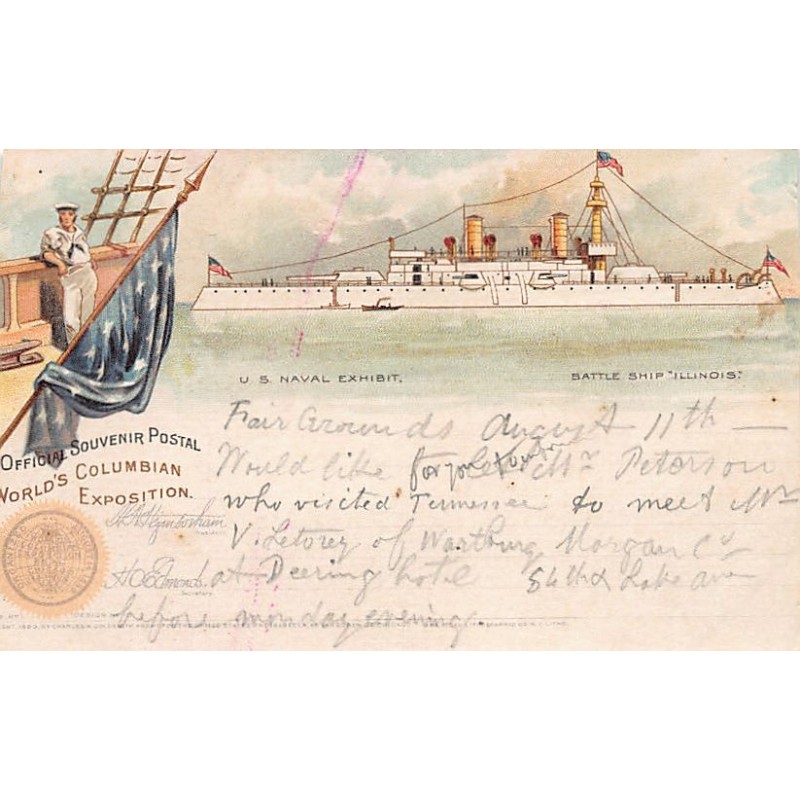 U. S. NAVAL EXHIBIT,
BATTLE SHIP "ILLINOIS".
OFFICIAL SOUVENIR POSTAL
WORLD'S COLUMBIAN
EXPOSITION.
Fair Grounds August 11th —
Would like for you Mr Peterson
who visited Tennessee to meet Mr
V. Letorey of Wartburg Morgan Co
at Deering hotel 56th & Lake ave
before monday evening